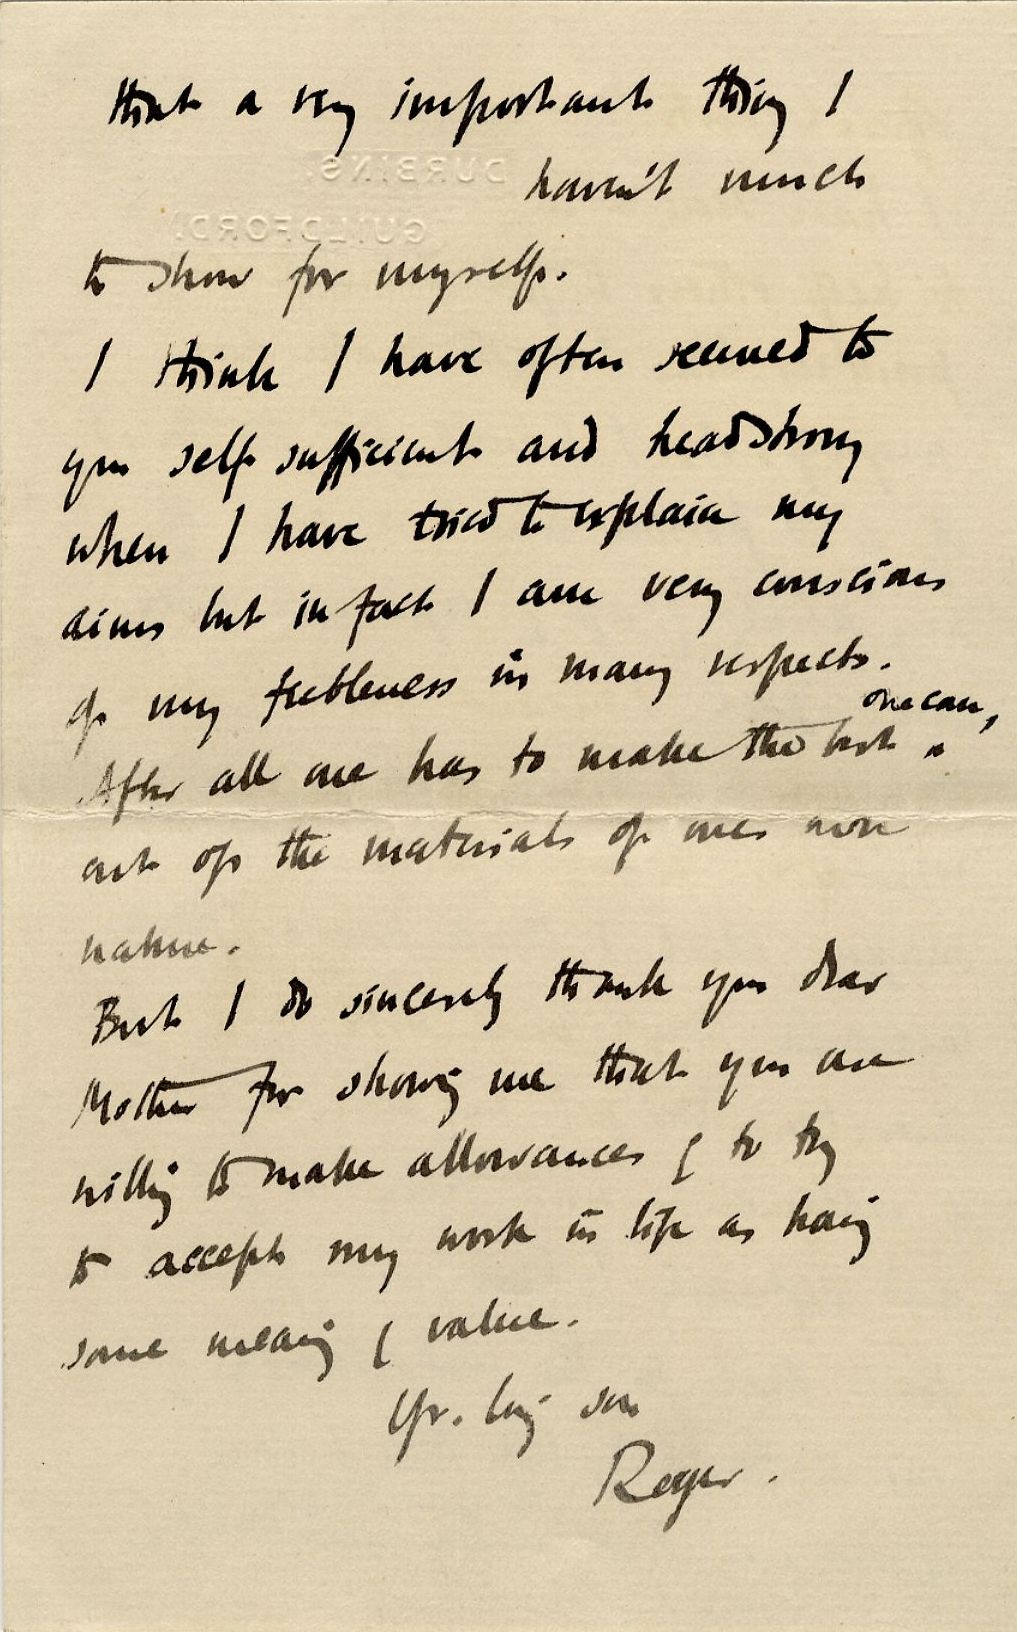 that a very important thing I
DURBINS,
haven't much
GUILDFORD.
to show for myself.
I think I have often seemed to
you self sufficient and headstrong
when I have tried to explain my
aims but in fact I am very conscious
of my feebleness in many respects.
one can,
After all one has to make the best
out of the materials of ones own
nature.
But I do sincerely thank you dear
Mother for showing me that you are
willing to make allowances & to try
to accept my work in life as having
some meaning & value.
Yr. lvng son
Roger.